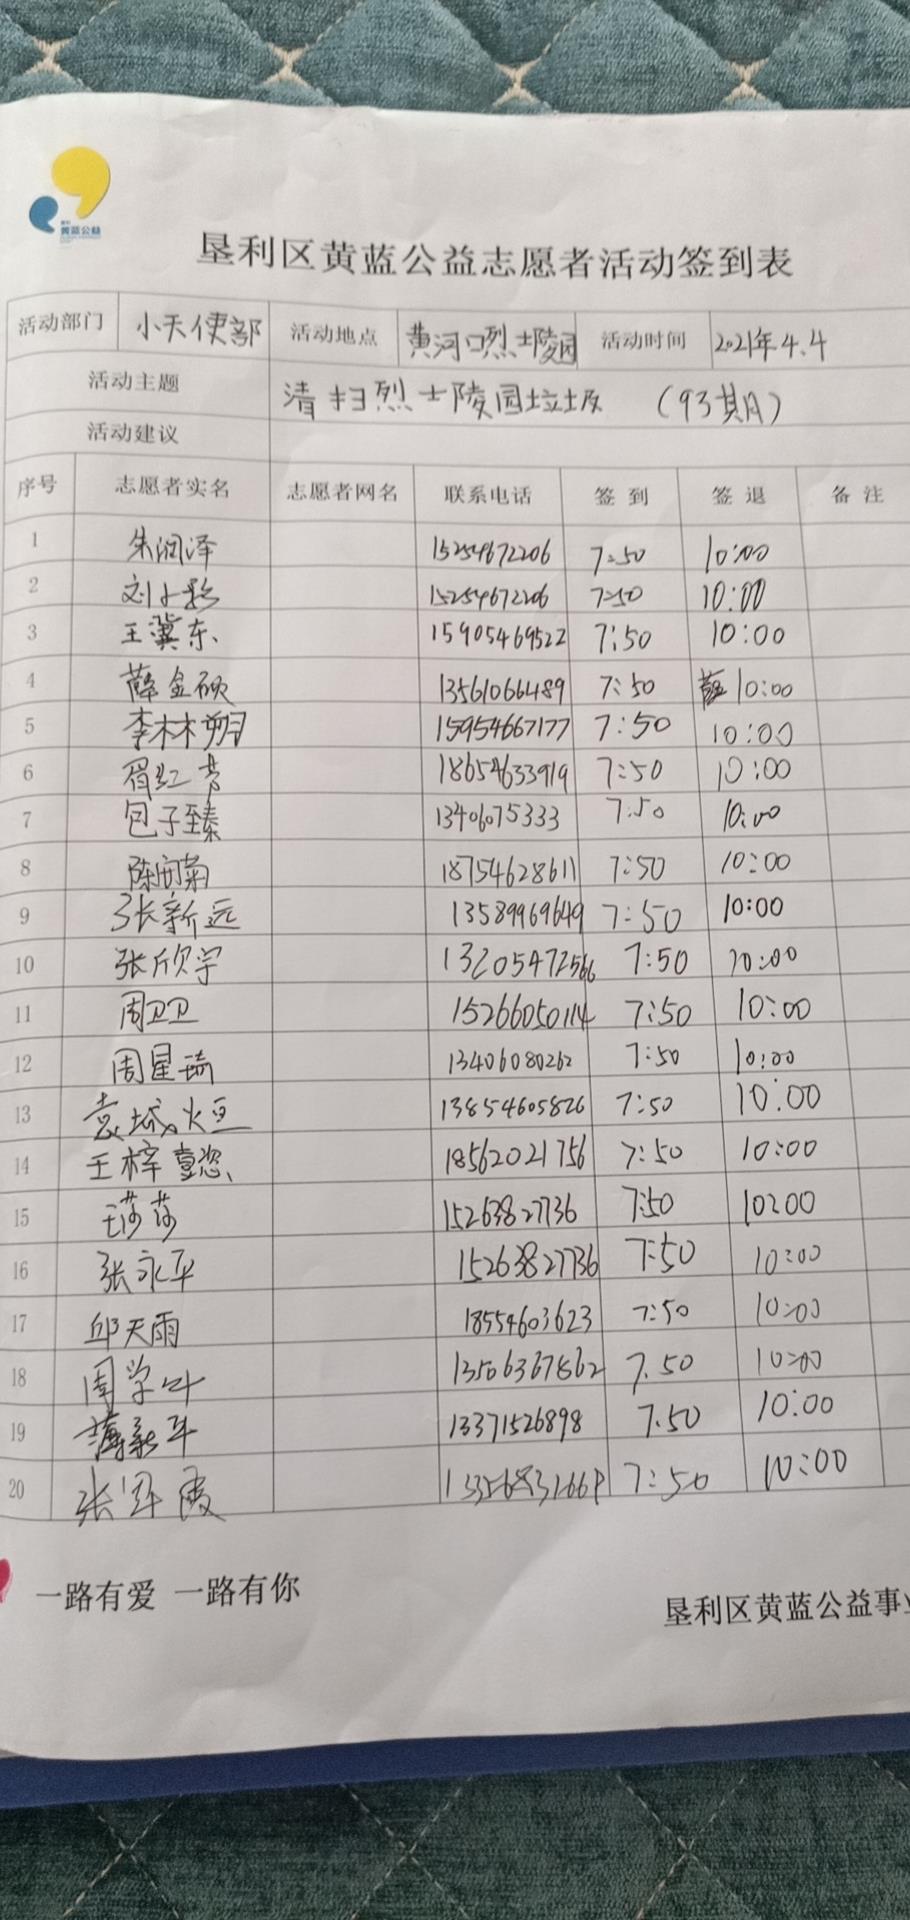 黄蓝公益
垦利区黄蓝公益志愿者活动签到表
活动部门 小天使部 活动地点 黄河口烈士陵园 活动时间 2021年4.4
活动主题 清扫烈士陵园垃圾 (93期)
活动建议
序号 志愿者实名 志愿者网名 联系电话 签到 签退 备注
1 朱润泽 15254672206 7:50 10:00
2 刘小彩 15254672206 7:50 10:00
3 王冀东 15905469522 7:50 10:00
4 薛金硕 13561066489 7:50 10:00
5 李林朔 15954667177 7:50 10:00
6 18654633919 7:50 10:00
7 包子臻 13406075333 7:50 10:00
8 陈菊 18754628611 7:50 10:00
9 张新远 13589969649 7:50 10:00
10 张欣宇 13205472566 7:50 10:00
11 周卫卫 15266050114 7:50 10:00
12 周星琦 13406080262 7:50 10:00
13 13854605826 7:50 10:00
14 王梓懿 18562021756 7:50 10:00
15 王莎莎 15263827736 7:50 10:00
16 张永平 15263827736 7:50 10:00
17 邱天雨 18554603623 7:50 10:00
18 周学叶 13506367862 7.50 10:00
19 13371526898 7.50 10:00
20 张霞 7:50 10:00
一路有爱 一路有你
垦利区黄蓝公益事业